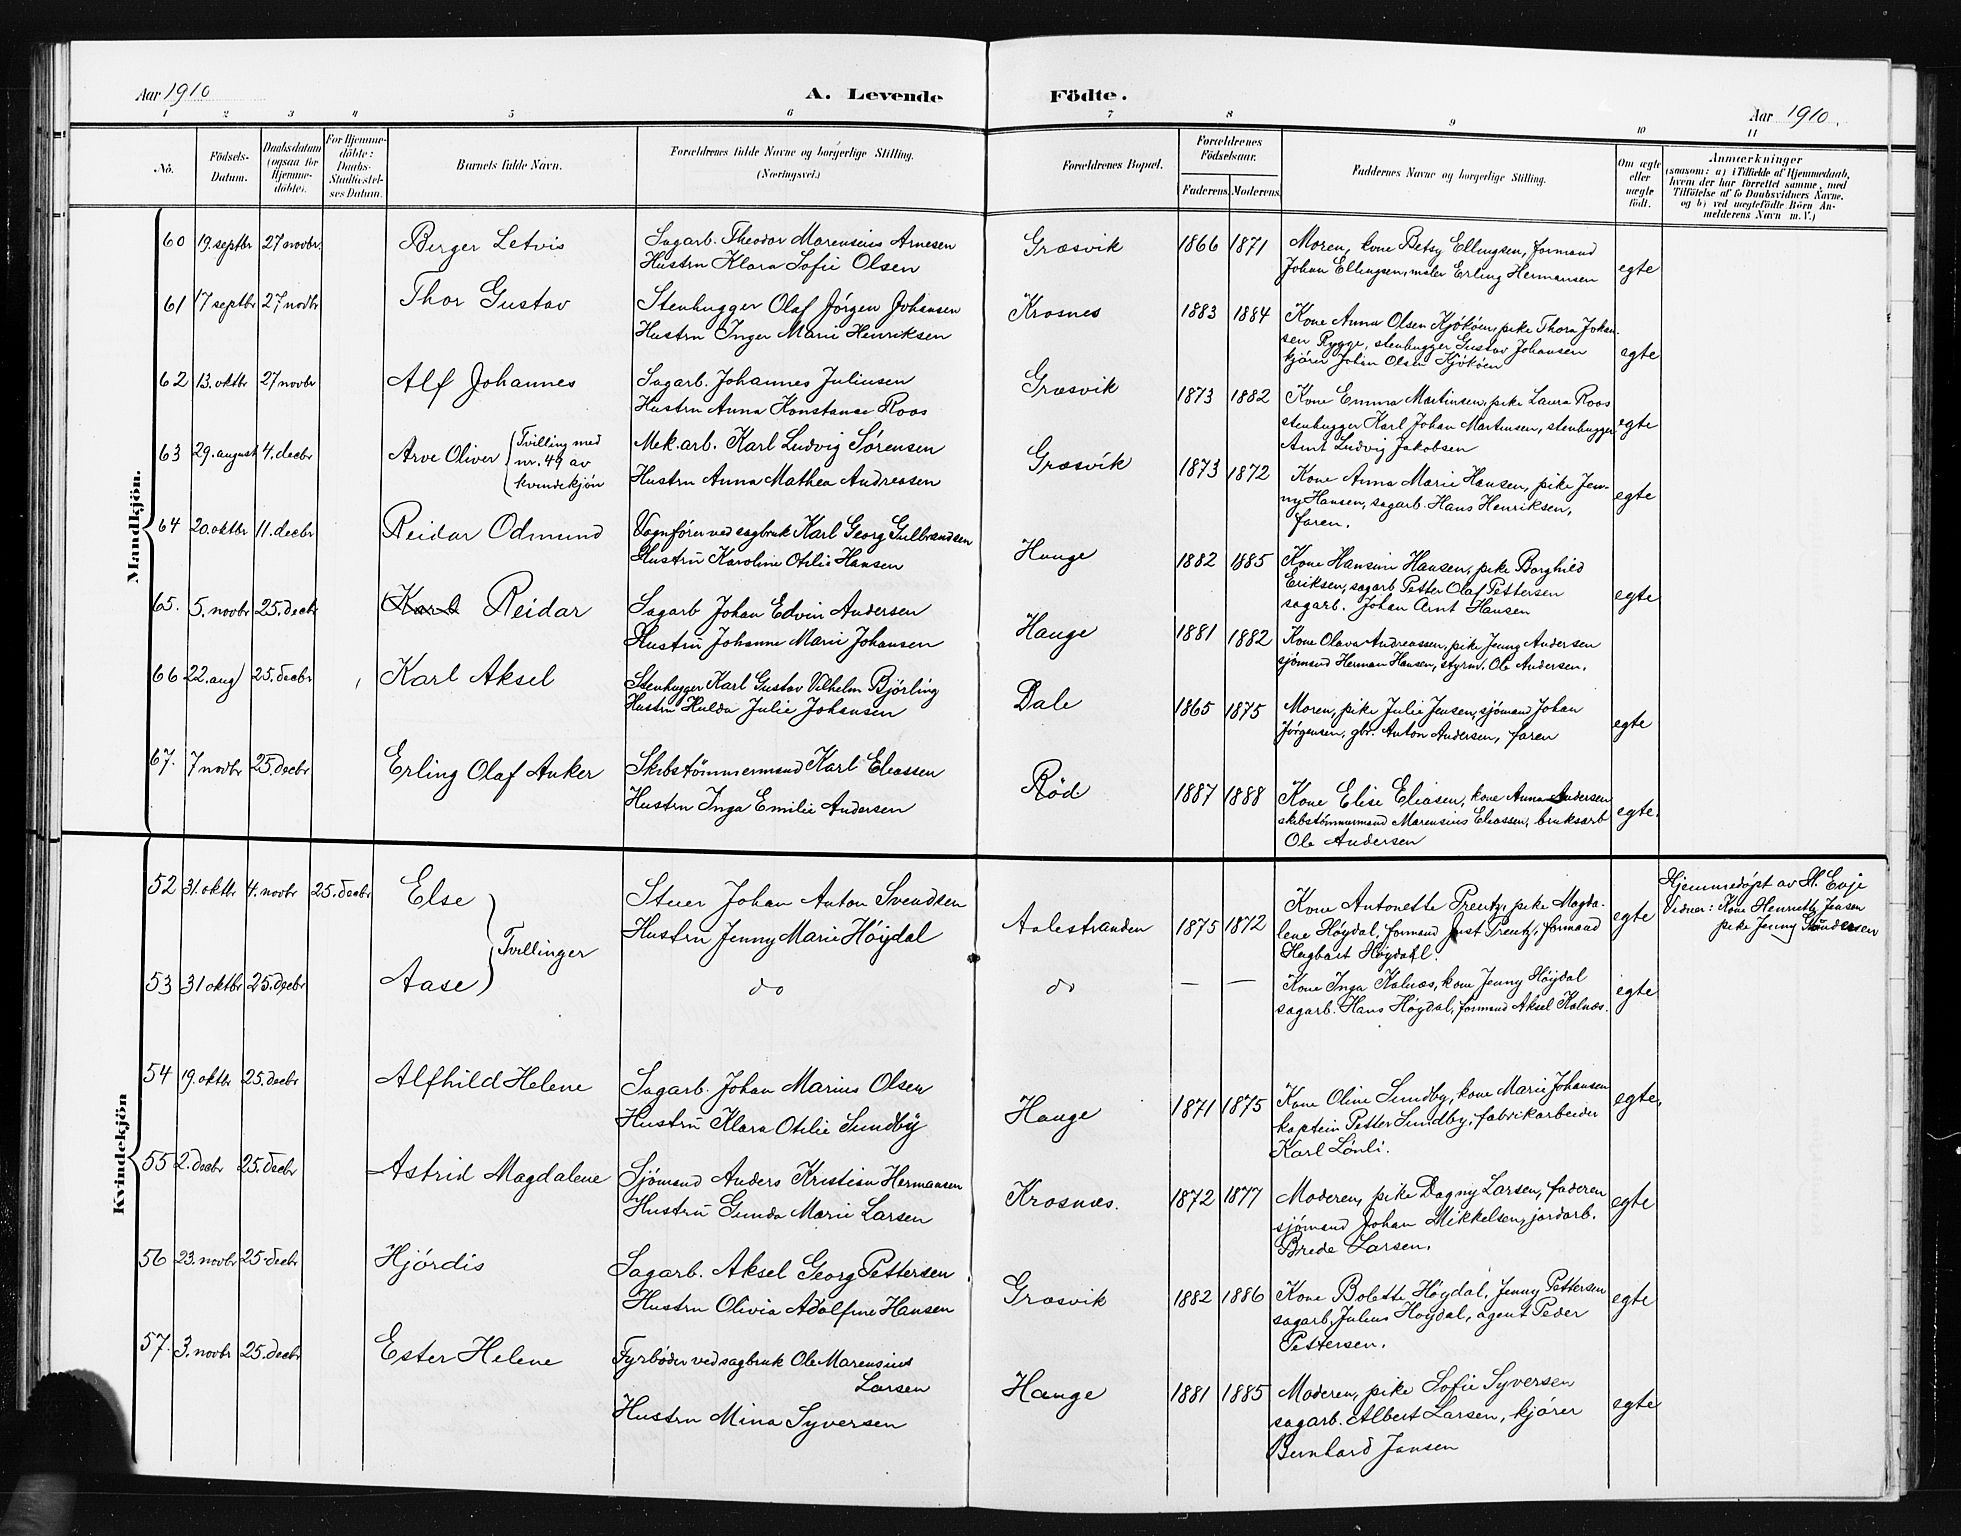 Aar 1910 A. Levende Födte. Aar 1910.
1 2 3 4 5 6 7 8 9 10 11
No. Födsels-Datum. Daabsdatum (ogsaa for Hjemme-döbte). For Hjemme-döbte: Daabs-Stadfæstel-ses Datum. Barnets fulde Navn. Forældrenes fulde Navne og borgerlige Stilling. (Næringsvei.) Forældrenes Bopæl. Forældrenes Födselsaar. Faderens. Moderens. Faddernes Navne og borgerlige Stilling. Om ægte eller uægte födt. Anmærkninger (saasom: a) i Tilfælde af Hjemmedaab, hvem der har forrettet samme, med Tilföielse af to Daabsvidners Navne, og b) ved uægtefödte Börn An-melderens Navn m. V.)
Mandkjön.
60 19 septbr 27 novbr. Berger Letvis Sagarb. Theodor Marensius Arnesen Græsvik 1866 1871 Moren, kone Betsy Ellingsen, formand
Hustru Klara Sofie Olsen Johan Ellingsen, maler Erling Hermansen egte
61 17 septbr 27 novbr Thor Gustav Stenhugger Olaf Jørgen Johansen Krosnes 1883 1884 Kone Anna Olsen Kjøkøen, pike Thora Johan-
Hustru Inger Marie Henriksen sen Rygge, stenhugger Gustav Johansen egte
kjører Johan Olsen Kjøkøen
62 13. oktbr 27 novbr Alf Johannes Sagarb. Johannes Juliusen Græsvik 1873 1882 Kone Emma Martinsen, pike Laura Roos
Hustru Anna Konstanse Roos stenhugger Karl Johan Martinsen, stenhugger egte
Arnt Ludvig Jakobsen
63 29. august 4. decbr Arve Oliver (Tvilling med nr. 49 av kvindekjøn Mek. arb. Karl Ludvig Sørensen Græsvik 1873 1872 Kone Anna Marie Hansen, pike Jen-
Hustru Anna Mathea Andreasen ny Hansen, sagarb. Hans Henriksen, egte
faren.
64 20. oktbr 11. decbr Reidar Odmund Vognfører ved sagbruk Karl Georg Gulbrandsen Hauge 1882 1885 Kone Hansine Hansen, pike Borghild
Hustru Karoline Otilie Hansen Eriksen, sagarb Petter Olaf Pettersen egte
sagarb. Johan Arnt Hansen
65. 5. novbr 25. decbr Karl Reidar Sagarb Johan Edvin Andersen Hauge 1881 1882 Kone Olava Andreassen, pike Jenny Andersen
Hustru Johanne Marie Johansen sjømand Herman Hansen, styrm. Ole Andersen.
66 22. aug 25. decbr Karl Aksel Stenhugger Karl Gustav Vilhelm Björling Dale 1865 1875 Moren, pike Julie Jensen, sjømand Johan
Hustru Hulda Julie Johansen Jørgensen, gbr. Anton Andersen, faren egte
67. 7 novbr 25. decbr Erling Olaf Anker Skibstømmermand Karl Eliassen Rød 1887 1888 Kone Elise Eliasen, kone Anna Andersen
Hustru Inga Emilie Andersen skibstømmermand Marensius Eliassen, bruksarb egte.
Ole Andersen
Kvindekjön
52 31. oktbr 4. novbr 25. decbr Else Stuer Johan Anton Svendsen Aalestranden 1875 1872 Kone Antonette Prentz, pike Magda- egte Hjemmedøpt av H. Evje
Tvillinger Hustru Jenny Marie Høydal lene Høydal, formand Just Prentz, formand Vidner: Kone Henriette Jensen
Hagbart Høydahl. pike Jenny Søndersen
53 31 oktbr 25. decbr Aase do do — — Kone Inga Kalnæs, kone Jenny Høydal egte
sagarb. Hans Høydal, formand Aksel Kalnæs.
54 19. oktbr 25. decbr Alfhild Helene Sagarb. Johan Marius Olsen Hauge 1871 1875 Kone Oline Sundby, kone Marie Johansen egte.
Hustru Klara Otilie Sundby kaptein Petter Sundby, fabrikarbeider
Karl Lönli.
55 2. decbr 25. decbr Astrid Magdalene Sjømand Anders Kristian Hermansen Krosnæs. 1872 1877 Moderen, pike Dagny Larsen, faderen egte
Hustru Gunda Marie Larsen sjømand Johan Mikkelsen, jordarb.
Brede Larsen.
56 23. novbr 25 decbr Hjørdis Sagarb. Aksel Georg Pettersen Græsvik 1882 1886 Kone Bolette Høydal, Jenny Pettersen egte
Hustru Olivia Adolfine Hansen sagarb. Julius Høydal, agent Peder
Pettersen.
57. 3. novbr 25. decbr Ester Helene Fyrbøder ved sagbruk Ole Marensius Larsen Hauge 1881 1885 Moderen, pike Sofie Syversen
Hustru Mina Syversen sagarb. Albert Larsen, kjører egte
Bernhard Jansen